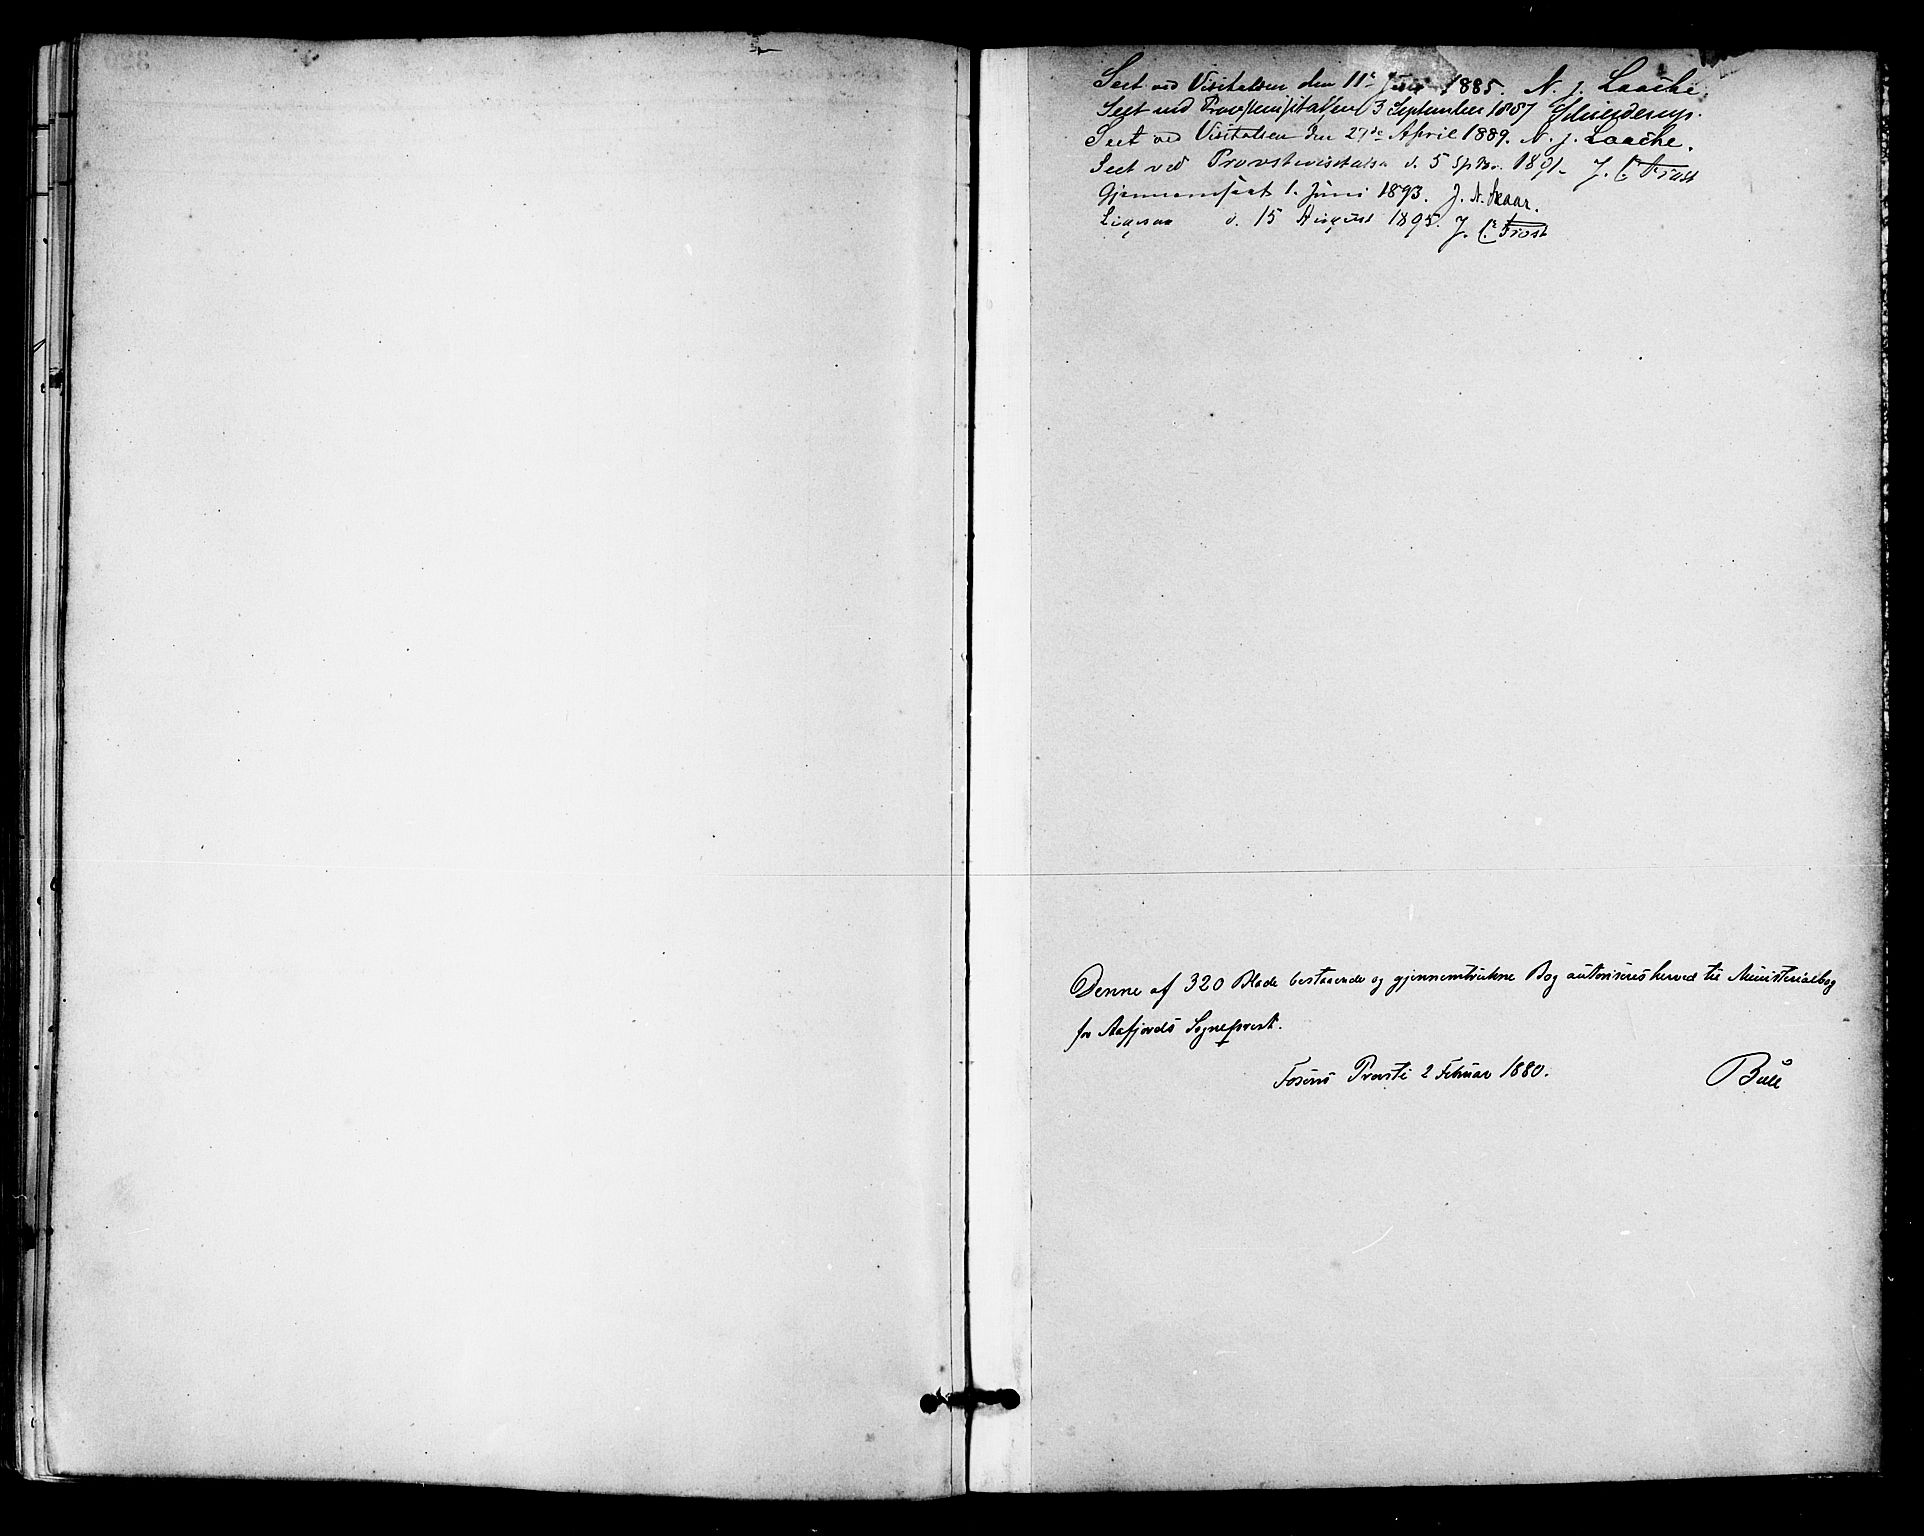 320
Seet ved Visitatsen den 11te Juni 1885. N. J. Laache.
Seet ved Provstevisitatsen 3 September 1887 Schielderup.
Seet ved Visitatsen den 27de April 1889. N. J. Laache.
Seet ved Provstevisitatsen d. 5 Sptbr. 1891. J. C. Frost
Gjennemseet 1. Juni 1893. J. N. Skaar.
Ligesaa d. 15 August 1895. J. C. Frost
Denne af 320 Blade bestaaende og gjennemtrukne Bog autoriseres herved til Ministerialbog
for Aafjords Sognepræst.
Fosens Provsti 2 Februar 1880. Bull